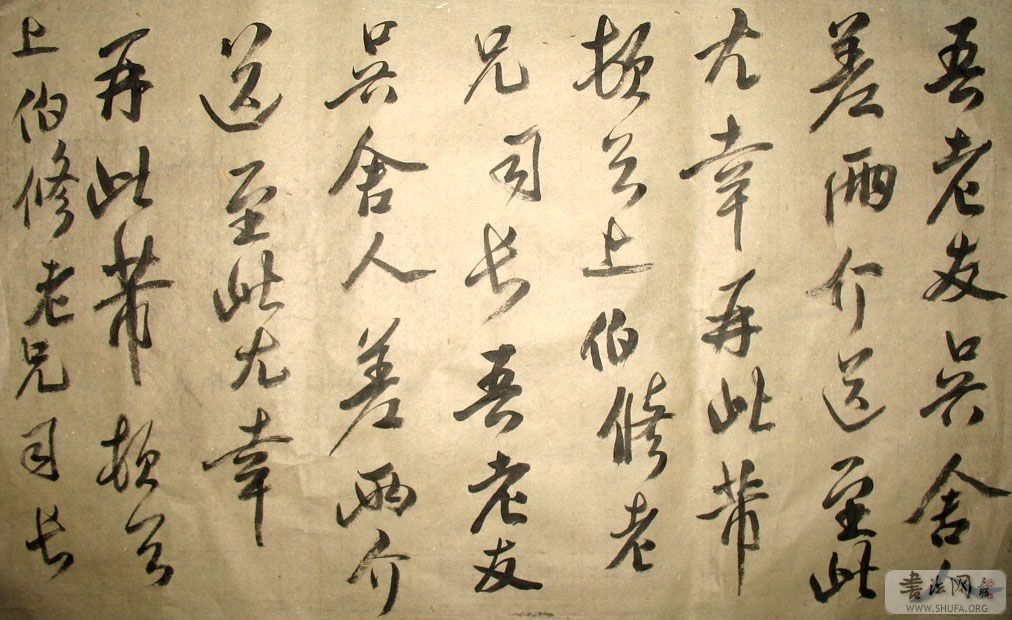 吾老友吳舍人
差兩介送至此
尤幸再此芾
頓首上伯修老
兄司長吾老友
吳舍人差兩介
送至此尤幸
再此芾頓首
上伯修老兄司長
书法网
WWW.SHUFA.ORG